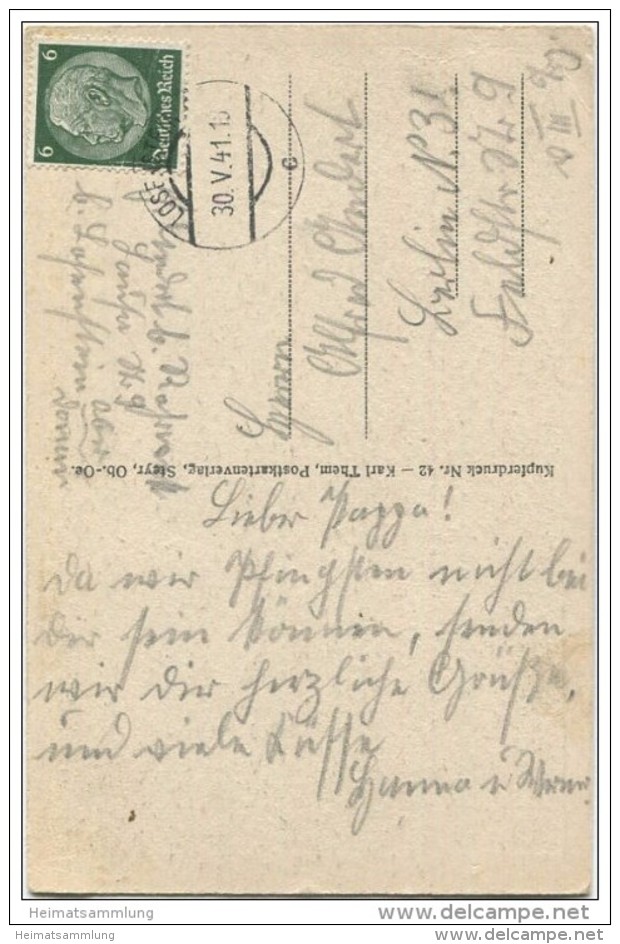 6
6
Deutsches Reich
30.V.41.18
c
Herrn
Alfred
Berlin N. 31
Feldstr. Nr 9
Kupferdruck Nr. 42 — Karl Them, Postkartenverlag, Steyr, Ob.-Oe.
Lieber Pappa!
da wir Pfingsten nicht bei
Dir sein können, senden
wir Dir herzliche Grüße,
und viele Küsse
Hanna u Werner
Heimatsammlung
Heimatsammlung
www.delcampe.net
www.delcampe.net